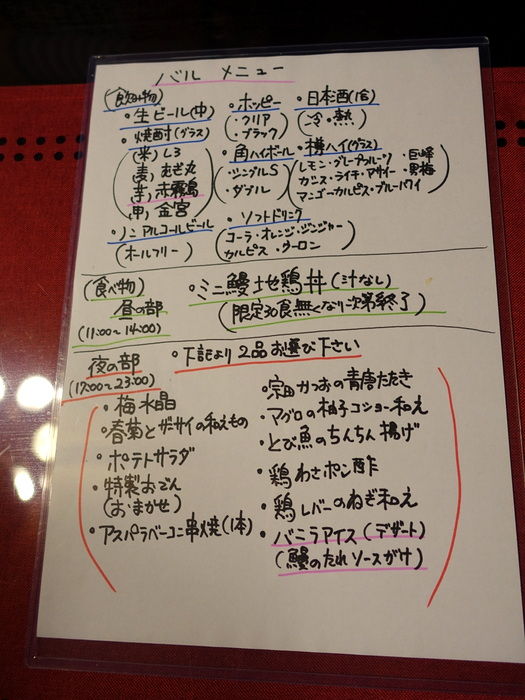 バル メニュー
(飲み物)
・生ビール(中)
・焼酎(グラス)
(米) しろ
(麦) むぎ丸
(芋) 赤霧島
(甲) 金宮
・ノンアルコールビール
(オールフリー)
・ホッピー
・クリア
・ブラック
・角ハイボール
・シングルS
・ダブル
・ソフトドリンク
コーラ・オレンジ・ジンジャー
カルピス・ウーロン
・日本酒(1合)
(冷・熱)
・樽ハイ(グラス)
レモン・グレープフルーツ・巨峰
カシス・ライチ・アサイー・男梅
マンゴーカルピス・ブルーハワイ
(食べ物)
昼の部
(11:00~14:00)
・ミニ鰻地鶏丼(汁なし)
(限定30食無くなり次第終了)
夜の部
(17:00~23:00)
・下記より2品お選び下さい
・梅水晶
・春菊とザーサイの和えもの
・ポテトサラダ
・特製おでん
(おまかせ)
・アスパラベーコン串焼(1本)
・宗田かつおの青唐たたき
・マグロの柚子コショー和え
・とび魚のちんちん揚げ
・鶏わさポン酢
・鶏レバーのねぎ和え
・バニラアイス(デザート)
(鰻のたれソースがけ)